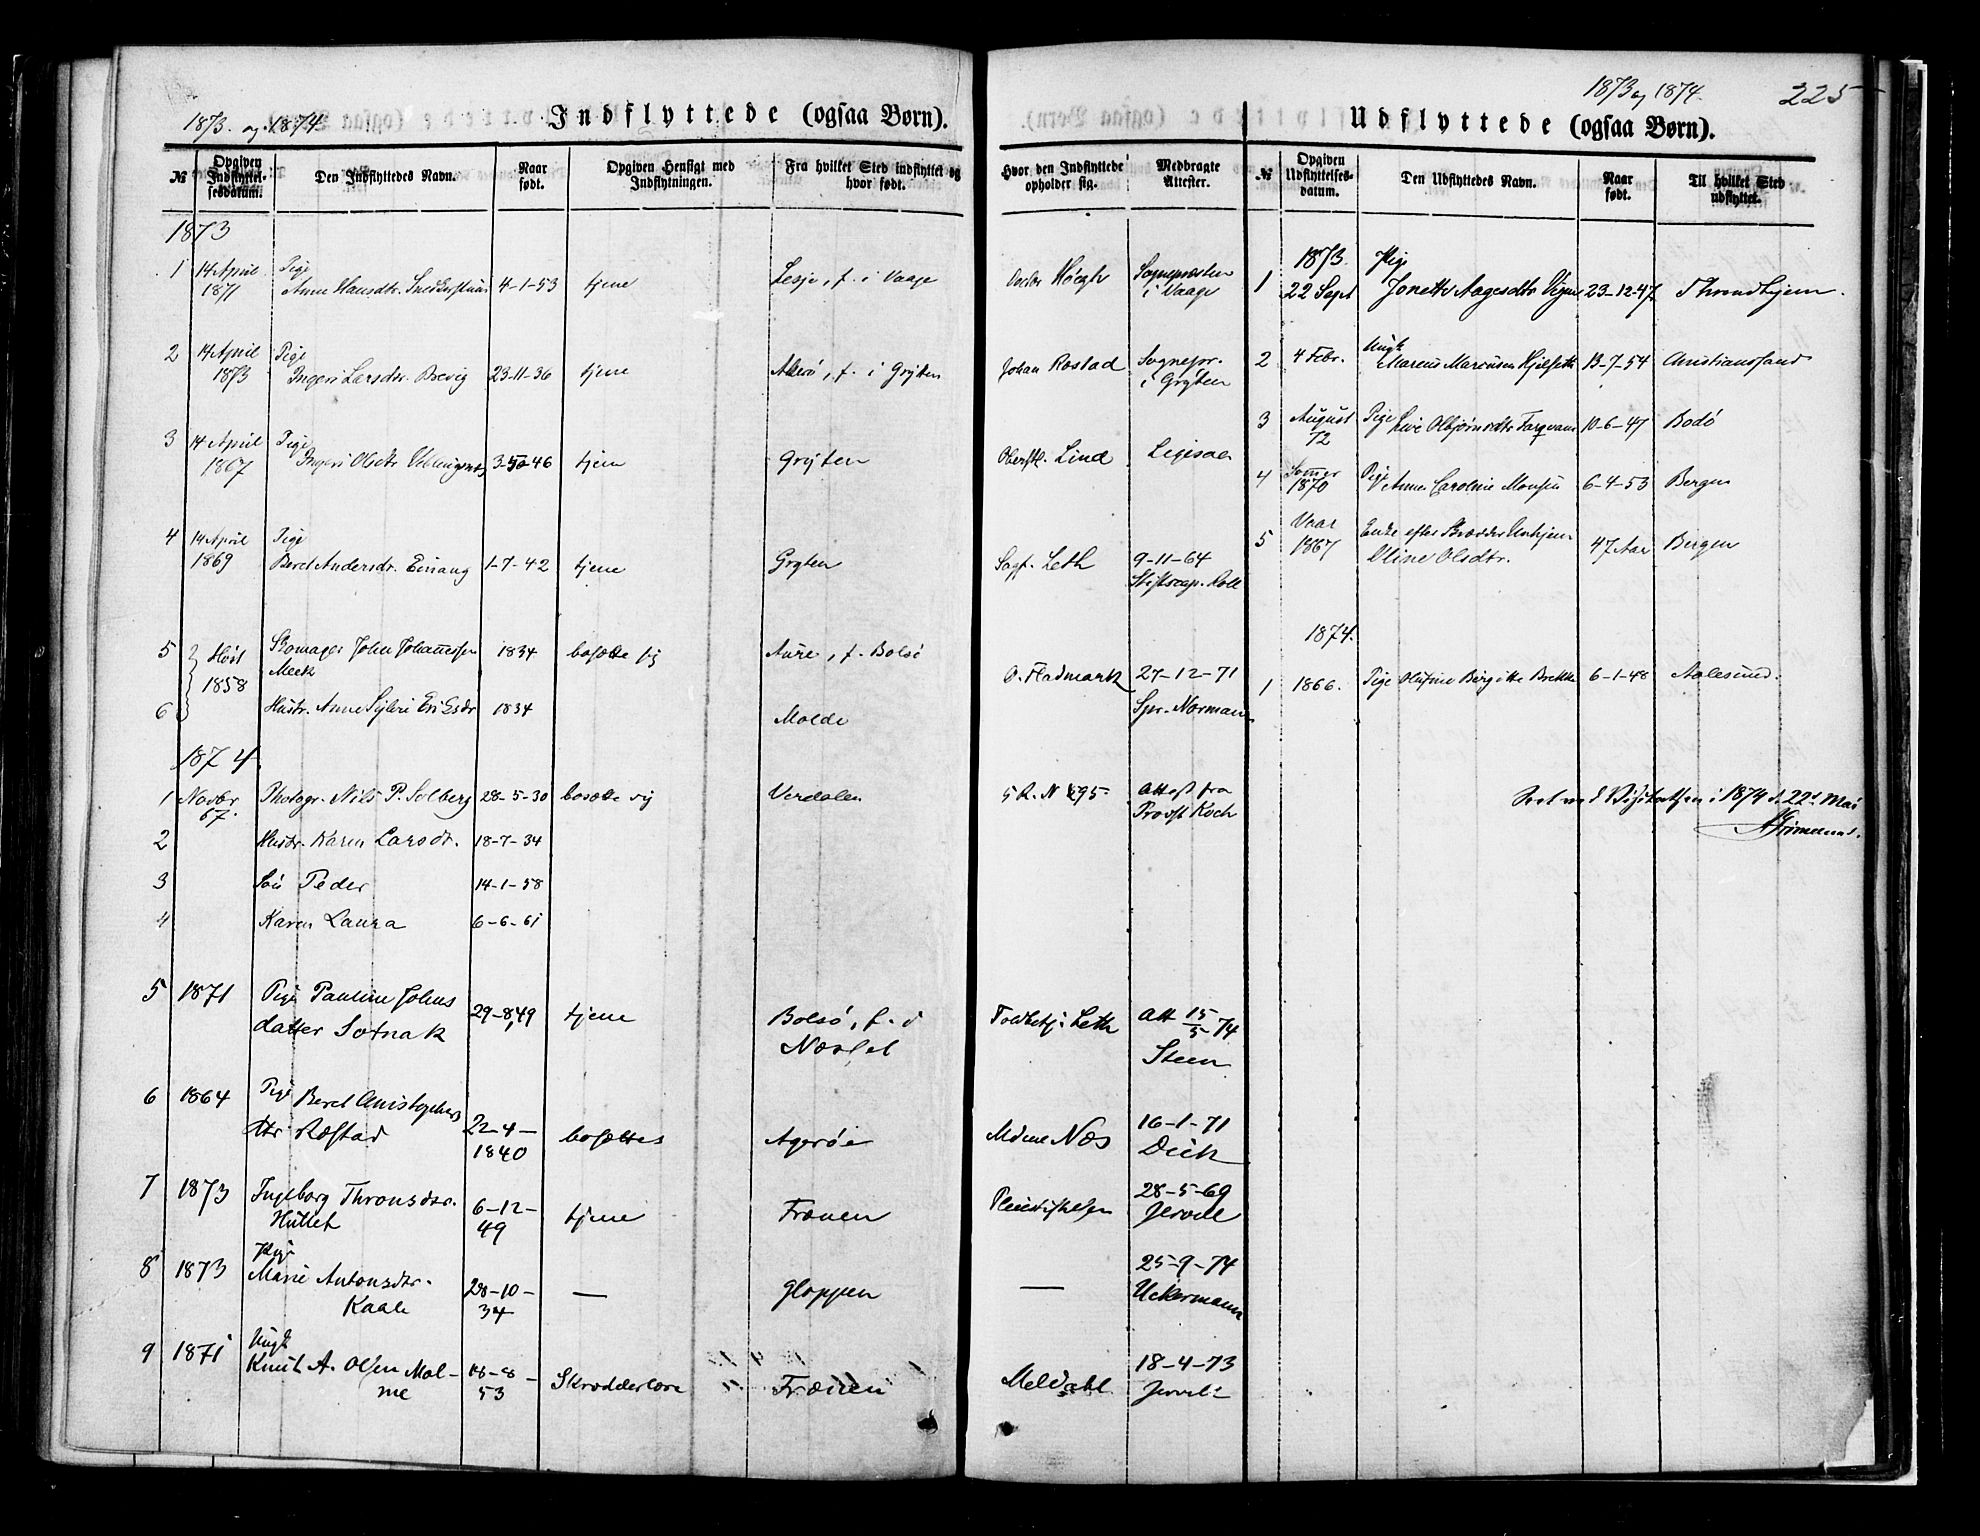 1873. og 1874.
Indflyttede (ogsaa Børn).
No
Opgiven Indflyttelsesdatum.
Den Indflyttedes Navn.
Naar født.
Opgiven Hensigt med Indflytningen.
Fra hvilket Sted indflyttet og hvor født.
Hvor den Indflyttede opholder sig.
Medbragte Attester.
1873
1 14 April Pige
1871 Anne Hansdtr. 4-1-53 tjene Lesje, f. i Vaage Høegh Sognepræsten
i Vaage
2 14 April Pige
1873 Ingeri Larsdtr. Brevig 23-11-36 tjene Akerø, f. i Grytten Johan Rostad Sognepr.
i Grytten
3 14 April Pige
1867 Ingeri Olsdtr. 46 tjene Grytten Oberstl. Lind
4 14 April Pige
1869 Beret Andersdr. Einang 1-7-42 tjene Gryten Sagf. Leth 9-11-64
Stiftscap. Roll
5 Høst Skomager John Johannessen 1834 bosætte sig Aure, f. Bolsø O. Fladmark 27-12-71
1858 Meek
6 Hustr. Anne Eriksdr 1834 Molde Spr. Norman
1874.
1 Novbr Photogr. Nils P. Solberg 28-5-30 bosætte sig Verdalen Attest fra
67. Provst Koch
2 Hustr. Karen Larsdr. 18-7-34
3 Søn Peder 14-1-58
4 Karen Laura 6-6-61
5 1871 Pige Pauline Johns 29-8-49 tjene Bolsø, f. i Toldbetj. Leth Att 15/5-74
datter Sotnak Næsset Steen
6 1864 Pige Beret Christophers 22-4-
dtr. Røstad 1840 bosættes Agerøe Mdme Næs 16-1-71
7 1873 Ingeborg Thronsdtr. 6-12- tjene Frænen 28-5-69
Hullet 49
8 1873 Pige
Marie Antonsdtr. 28-10- — Gloppen — 25-9-74
Kaale 34 Uckermann
9 1871 Ungk
Knut A. Olsen Mal- 53 Skrædderlære Frænen Meldahl 18-4-73
me
1873 og 1874. 225
Udflyttede (ogsaa Børn).
No
Opgiven Udflyttelsesdatum.
Den Udflyttedes Navn.
Naar født.
Til hvilket Sted udflyttet.
1873. Pige
1 22 Sept Jonette Aagesdtr 23-12-47 Throndhjem.
2 4 Febr. Ungk
Marcus Marcusen Hjelset 13-7-54 Christianssand
3 August Pige Olbjørnsdtr 10-6-47 Bodø
72
4 Somer
1870 Pige Anne Caroline Monsen 6-4-53 Bergen
5 Vaar Enke efter
1867 Oline Olsdtr. 47 Aar Bergen
1874.
1 1866. Pige Olufine Birgitte Brekke 6-1-48 Aalesund.
Seet ved Visitatsen i 1874 d. 22d Mai